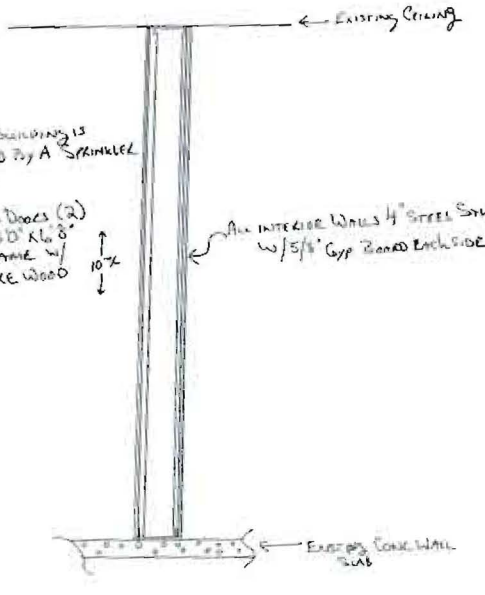 Existing Ceiling
Building is
By A Sprinkler
Doors (2)
w/
Wood
10'
All Interior Walls 4" Steel
w/ 5/8" Gyp Board Each Side
Existing Conc Wall
Slab